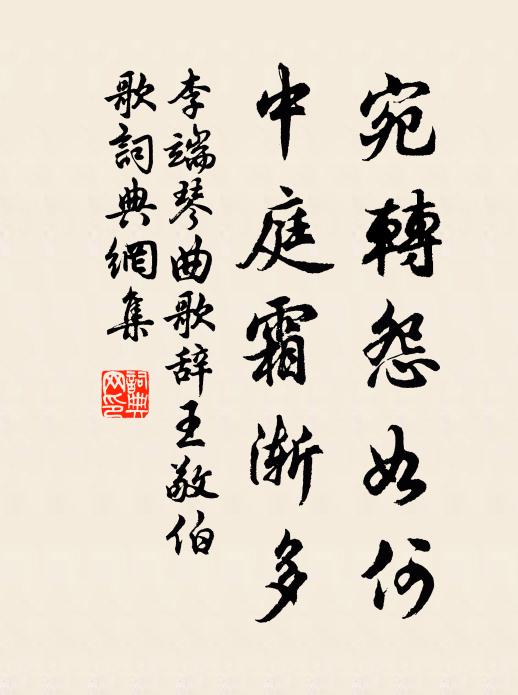 宛轉怨如何
中庭霜漸多
李端琴曲歌辞王敬伯
歌詞典網集
詞典网印